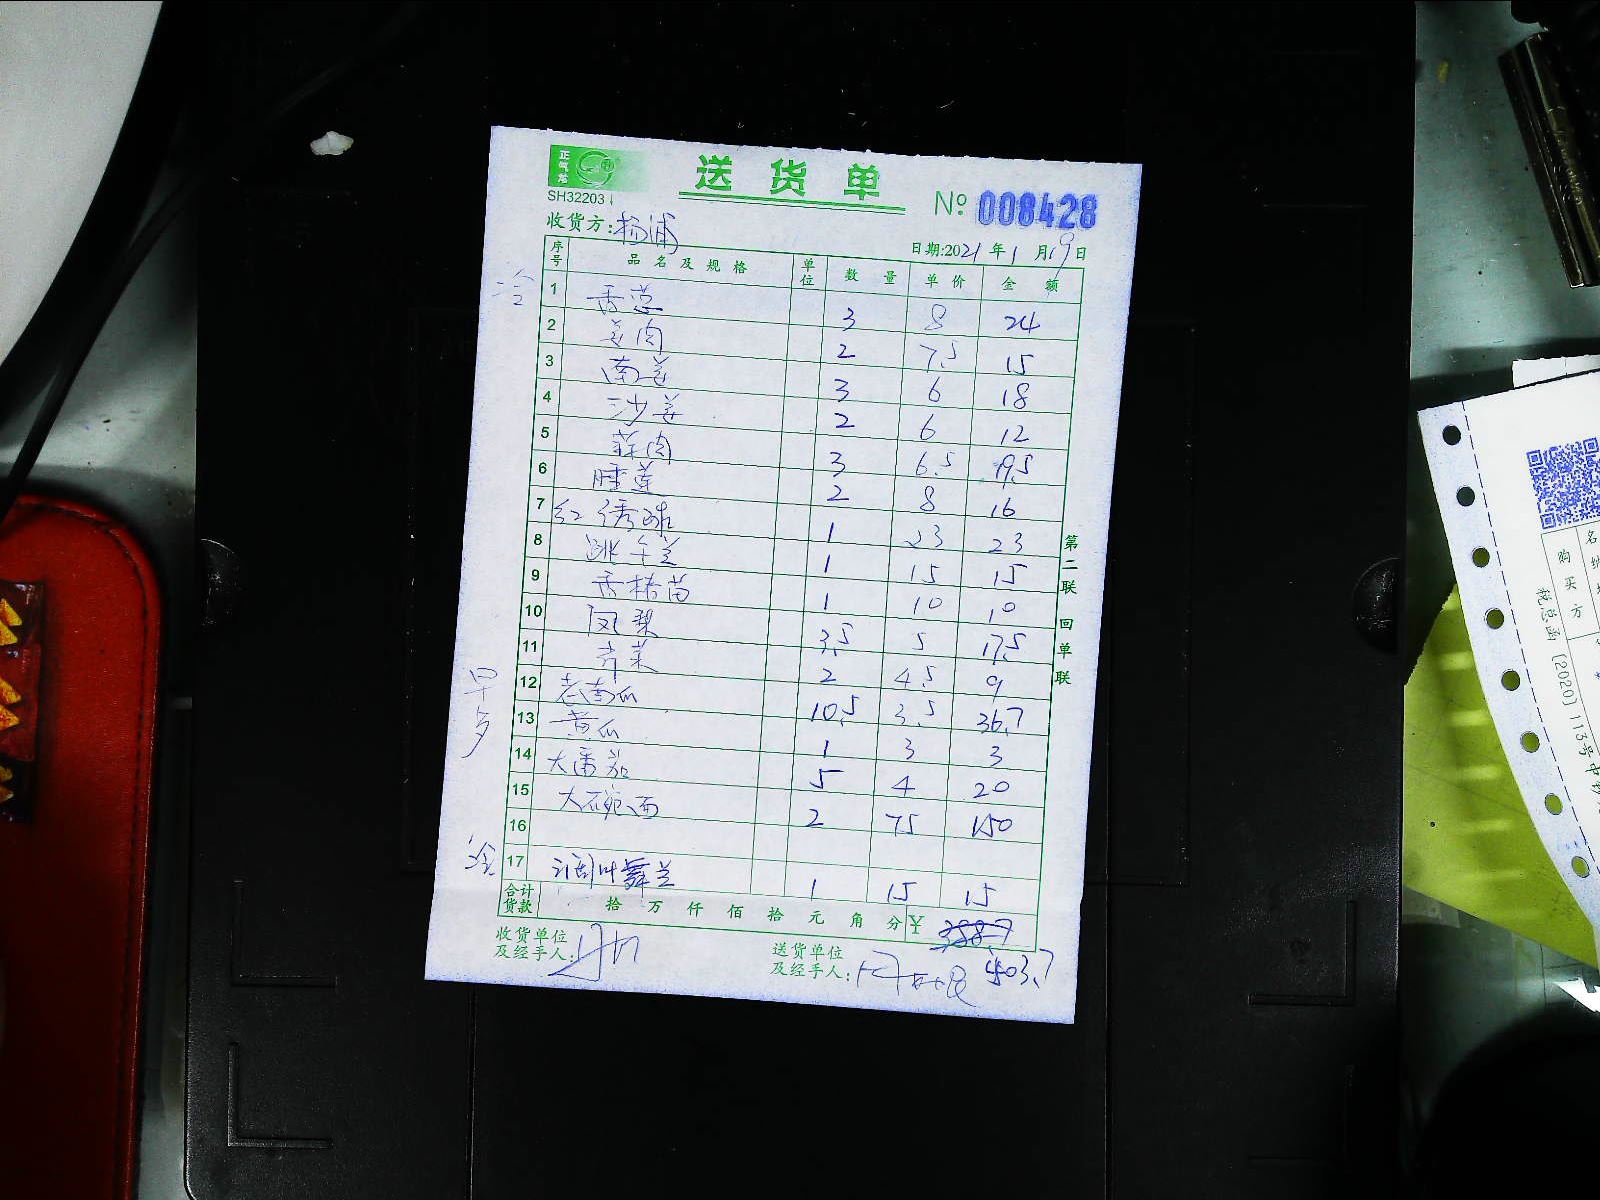 正气签
SH32203
送货单
№ 008428
收货方:杨浦
日期:2021年1月19日
序号 品名及规格 单位 数量 单价 金额
冷
1 香葱 3 8 24
2 姜肉 2 7.5 15
3 南姜 3 6 18
4 沙姜 2 6 12
5 蒜肉 3 6.5 19.5
6 睡莲 2 8 16
7 红绣球 1 23 23
8 跳午兰 1 15 15
9 香椿苗 1 10 10
10 凤梨 3.5 5 17.5
11 芹菜 2 4.5 9
早
12 老南瓜 10.5 3.5 36.7
13 黄瓜 1 3 3
14 大番茄 5 4 20
15 大碗面 2 75 150
16
冷
17 叶舞兰 1 15 15
合计货款 拾 万 仟 佰 拾 元 角 分 ¥ 388.7
403.7
收货单位及经手人:
送货单位及经手人:
第二联 回单联
购买方
税总函〔2020〕113号中